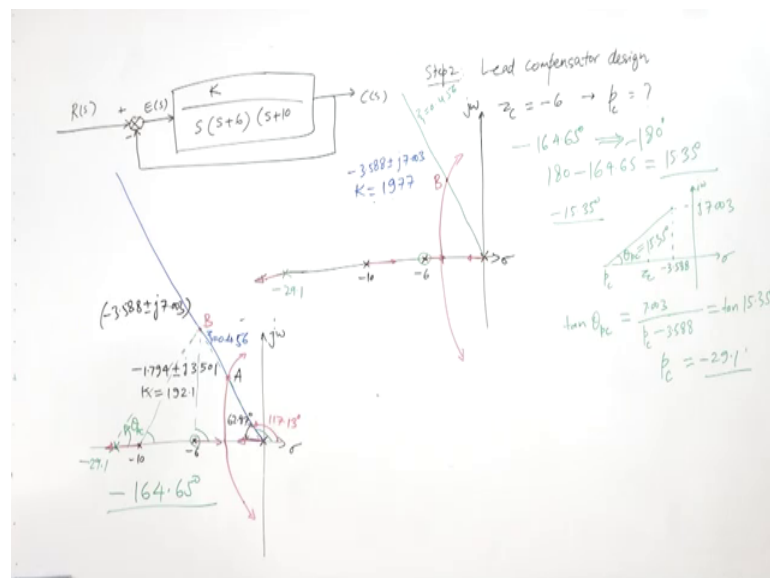 R(s)
+
E(s)
K
S(S+6)(S+10
C(s)
-
Step2: Lead compensator design
z_c = -6 → p_c = ?
-164.65° ⟹ -180°
180-164.65 = 15.35°
-15.35°
jω
j7.003
θ_pc = 15.35°
p_c
z_c
-3.588
σ
tan θ_pc = 7.003 / p_c - 3.588 = tan 15.35
p_c = -29.1
ζ=0.456
jω
-3.588±j7.003
K=1977
B
-29.1
-10
-6
σ
(-3.588±j7.003)
B
ζ=0.456
jω
-1.794±j3.501
K=192.1
A
62.87°
117.13°
θ_pc
-29.1
-10
-6
σ
-164.65°